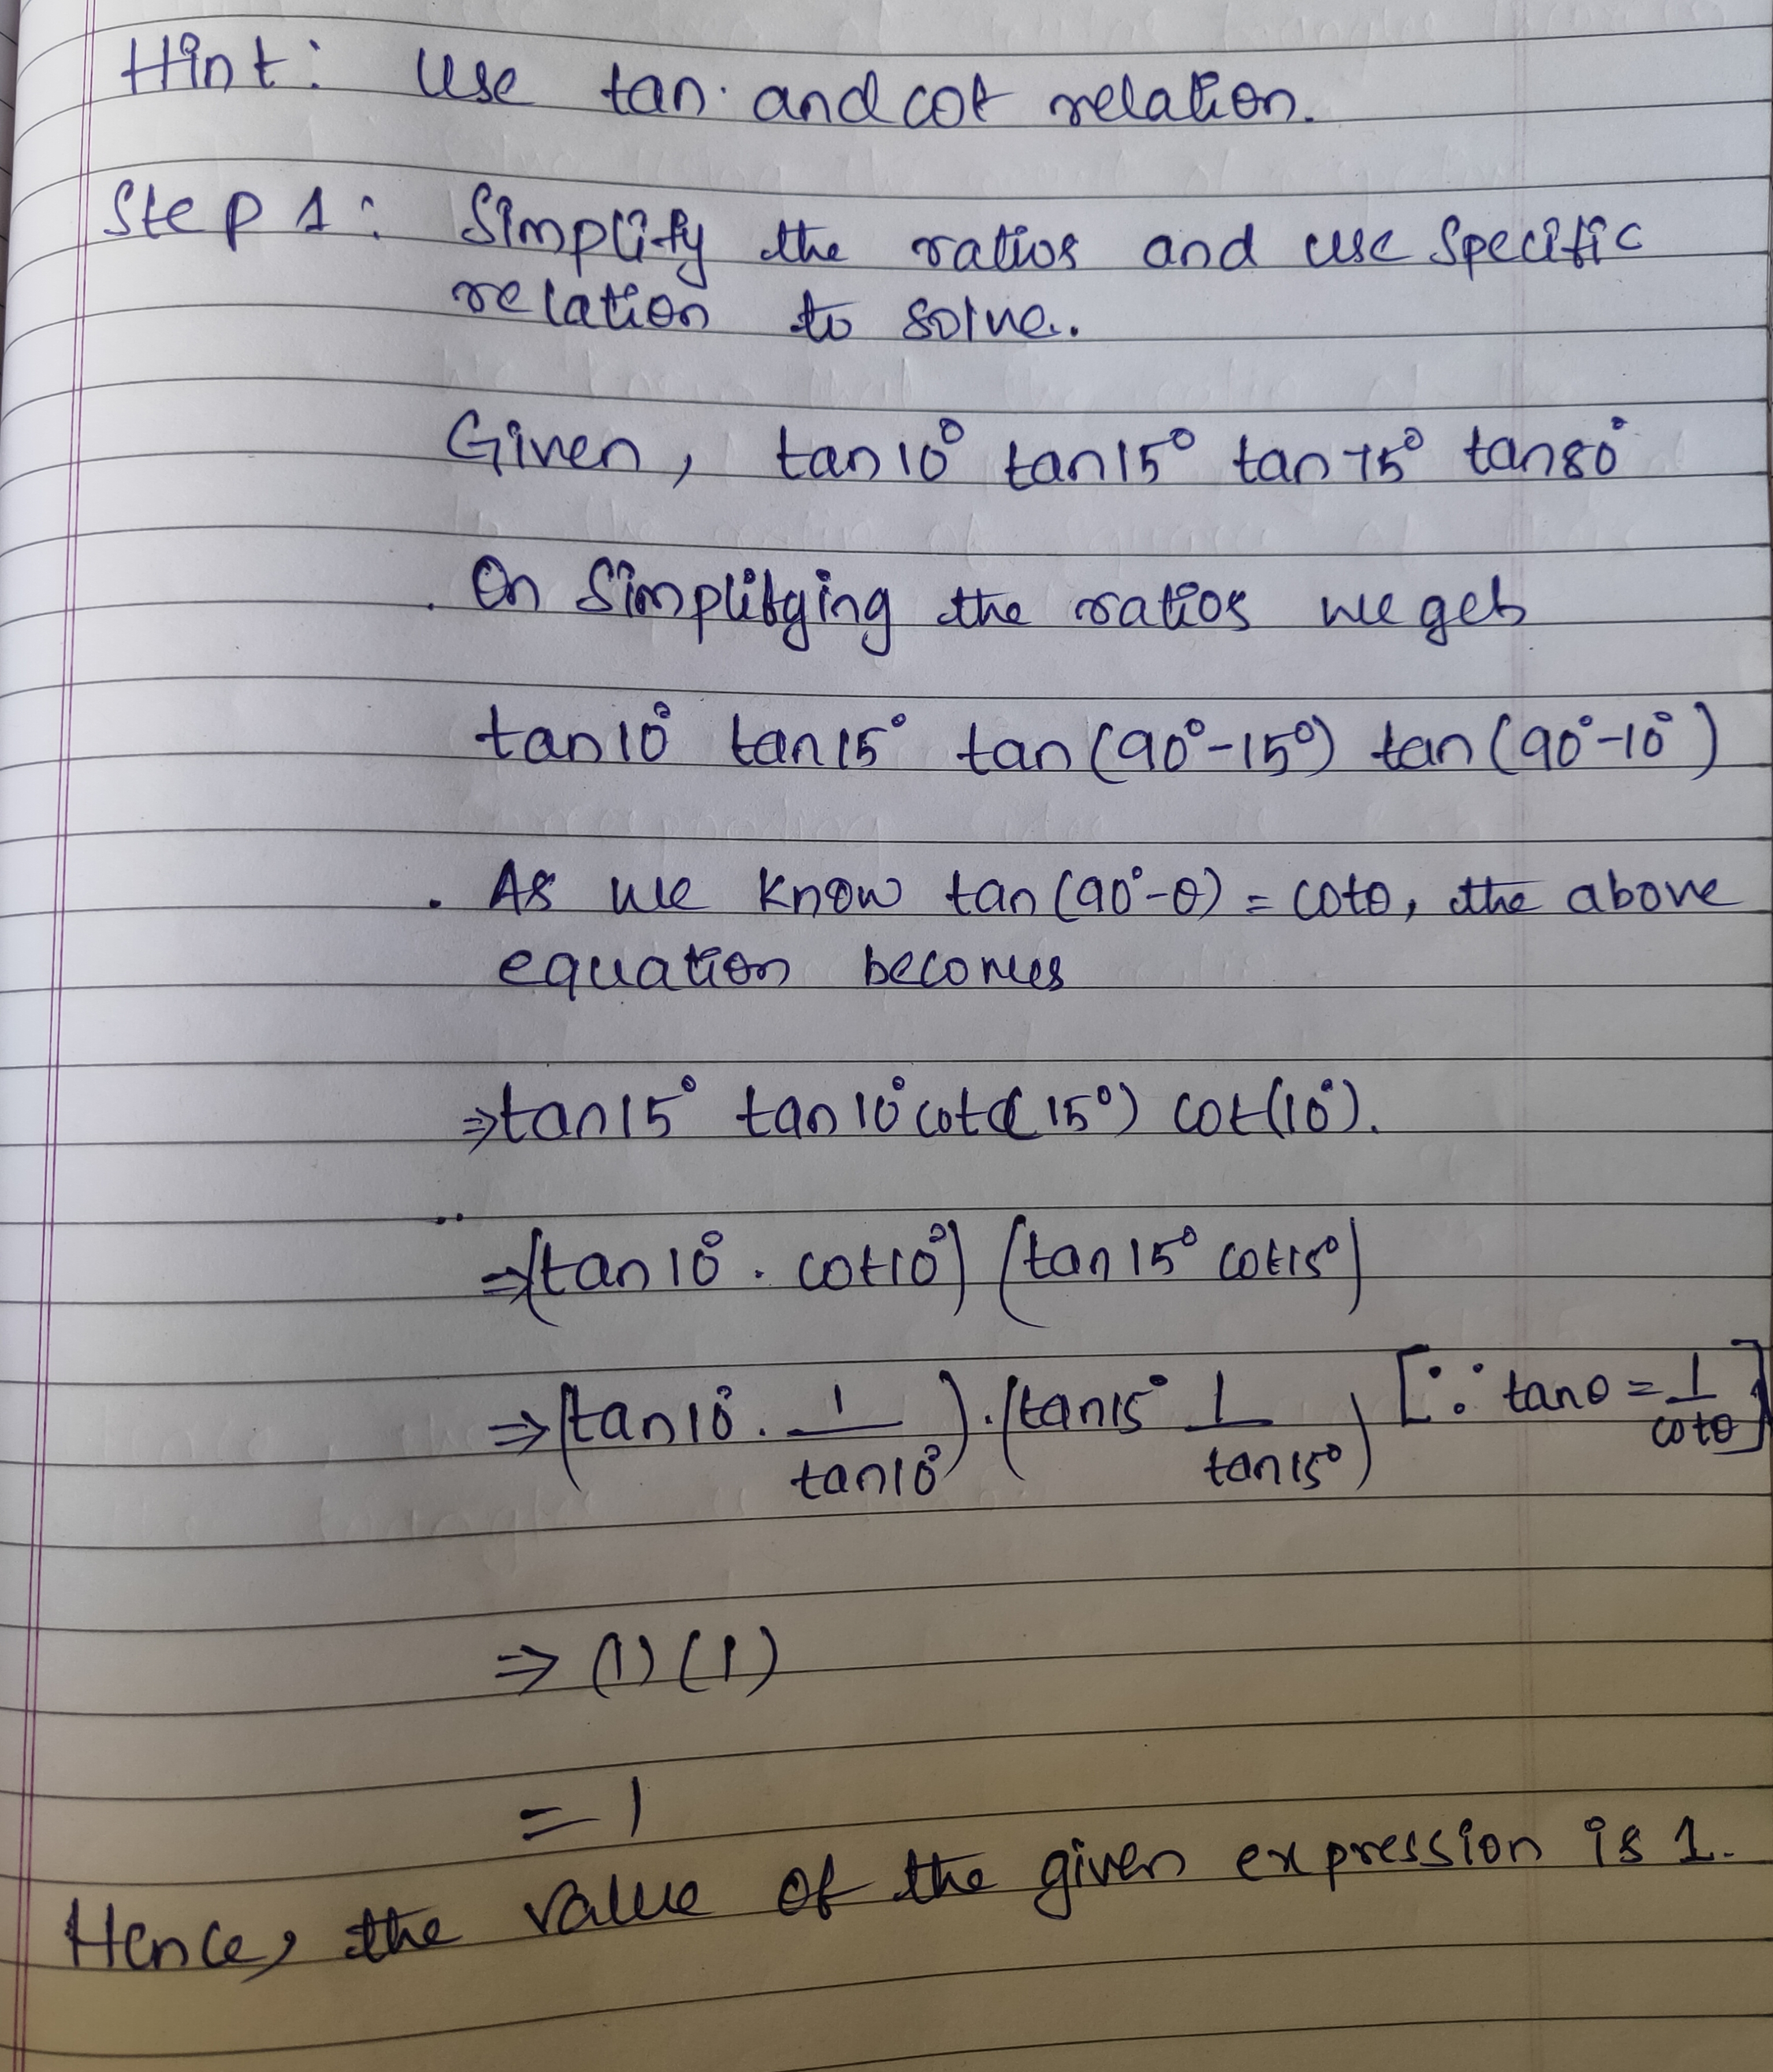 Hint: Use tan. and cot relation.
Step 1: Simplify the ratios and use specific
relation to solve..
Given, tan10° tan15° tan75° tan80°
. On Simplifying the ratios we get
tan10° tan15° tan(90°-15°) tan(90°-10°)
. As we know tan(90°-θ) = cotθ, the above
equation becomes
⇒tan15° tan10° cot(15°) cot(10°).
⇒(tan10° . cot10°) (tan15° cot15°)
⇒(tan10° . 1/tan10°).(tan15° 1/tan15°) [∵ tanθ = 1/cotθ]
⇒ (1) (1)
= 1
Hence, the value of the given expression is 1.